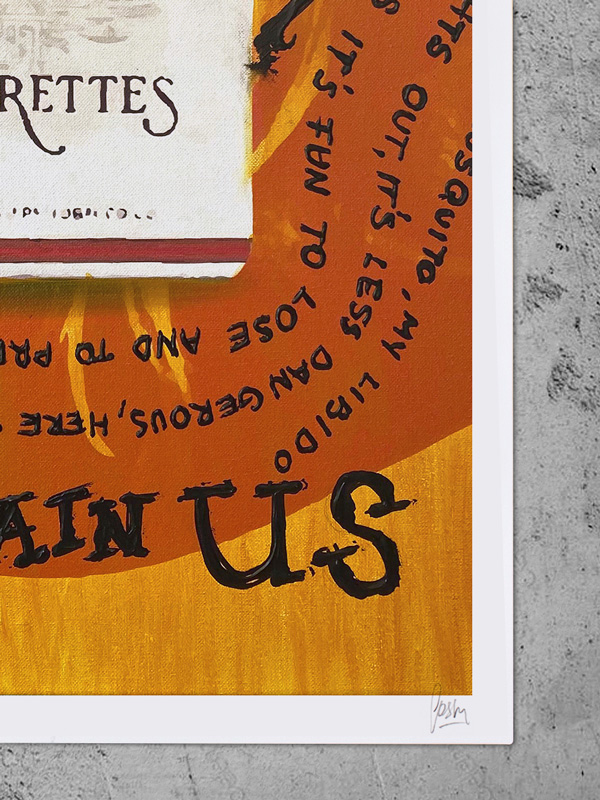 RETTES
S IT'S FUN TO LOSE AND TO PRE
HTS OUT, IT'S LESS DANGEROUS, HERE
OSQUITO, MY LIBIDO
AIN US